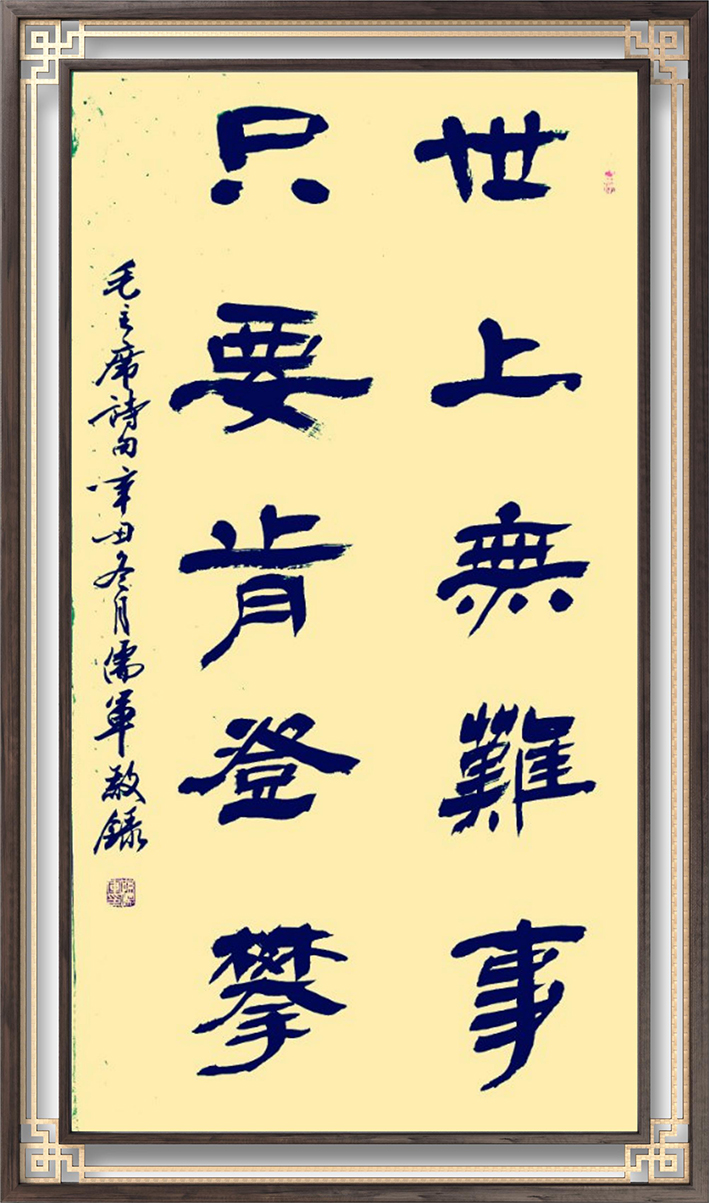 世上無難事
只要肯登攀
毛主席詩句辛丑冬月儒軍敬錄